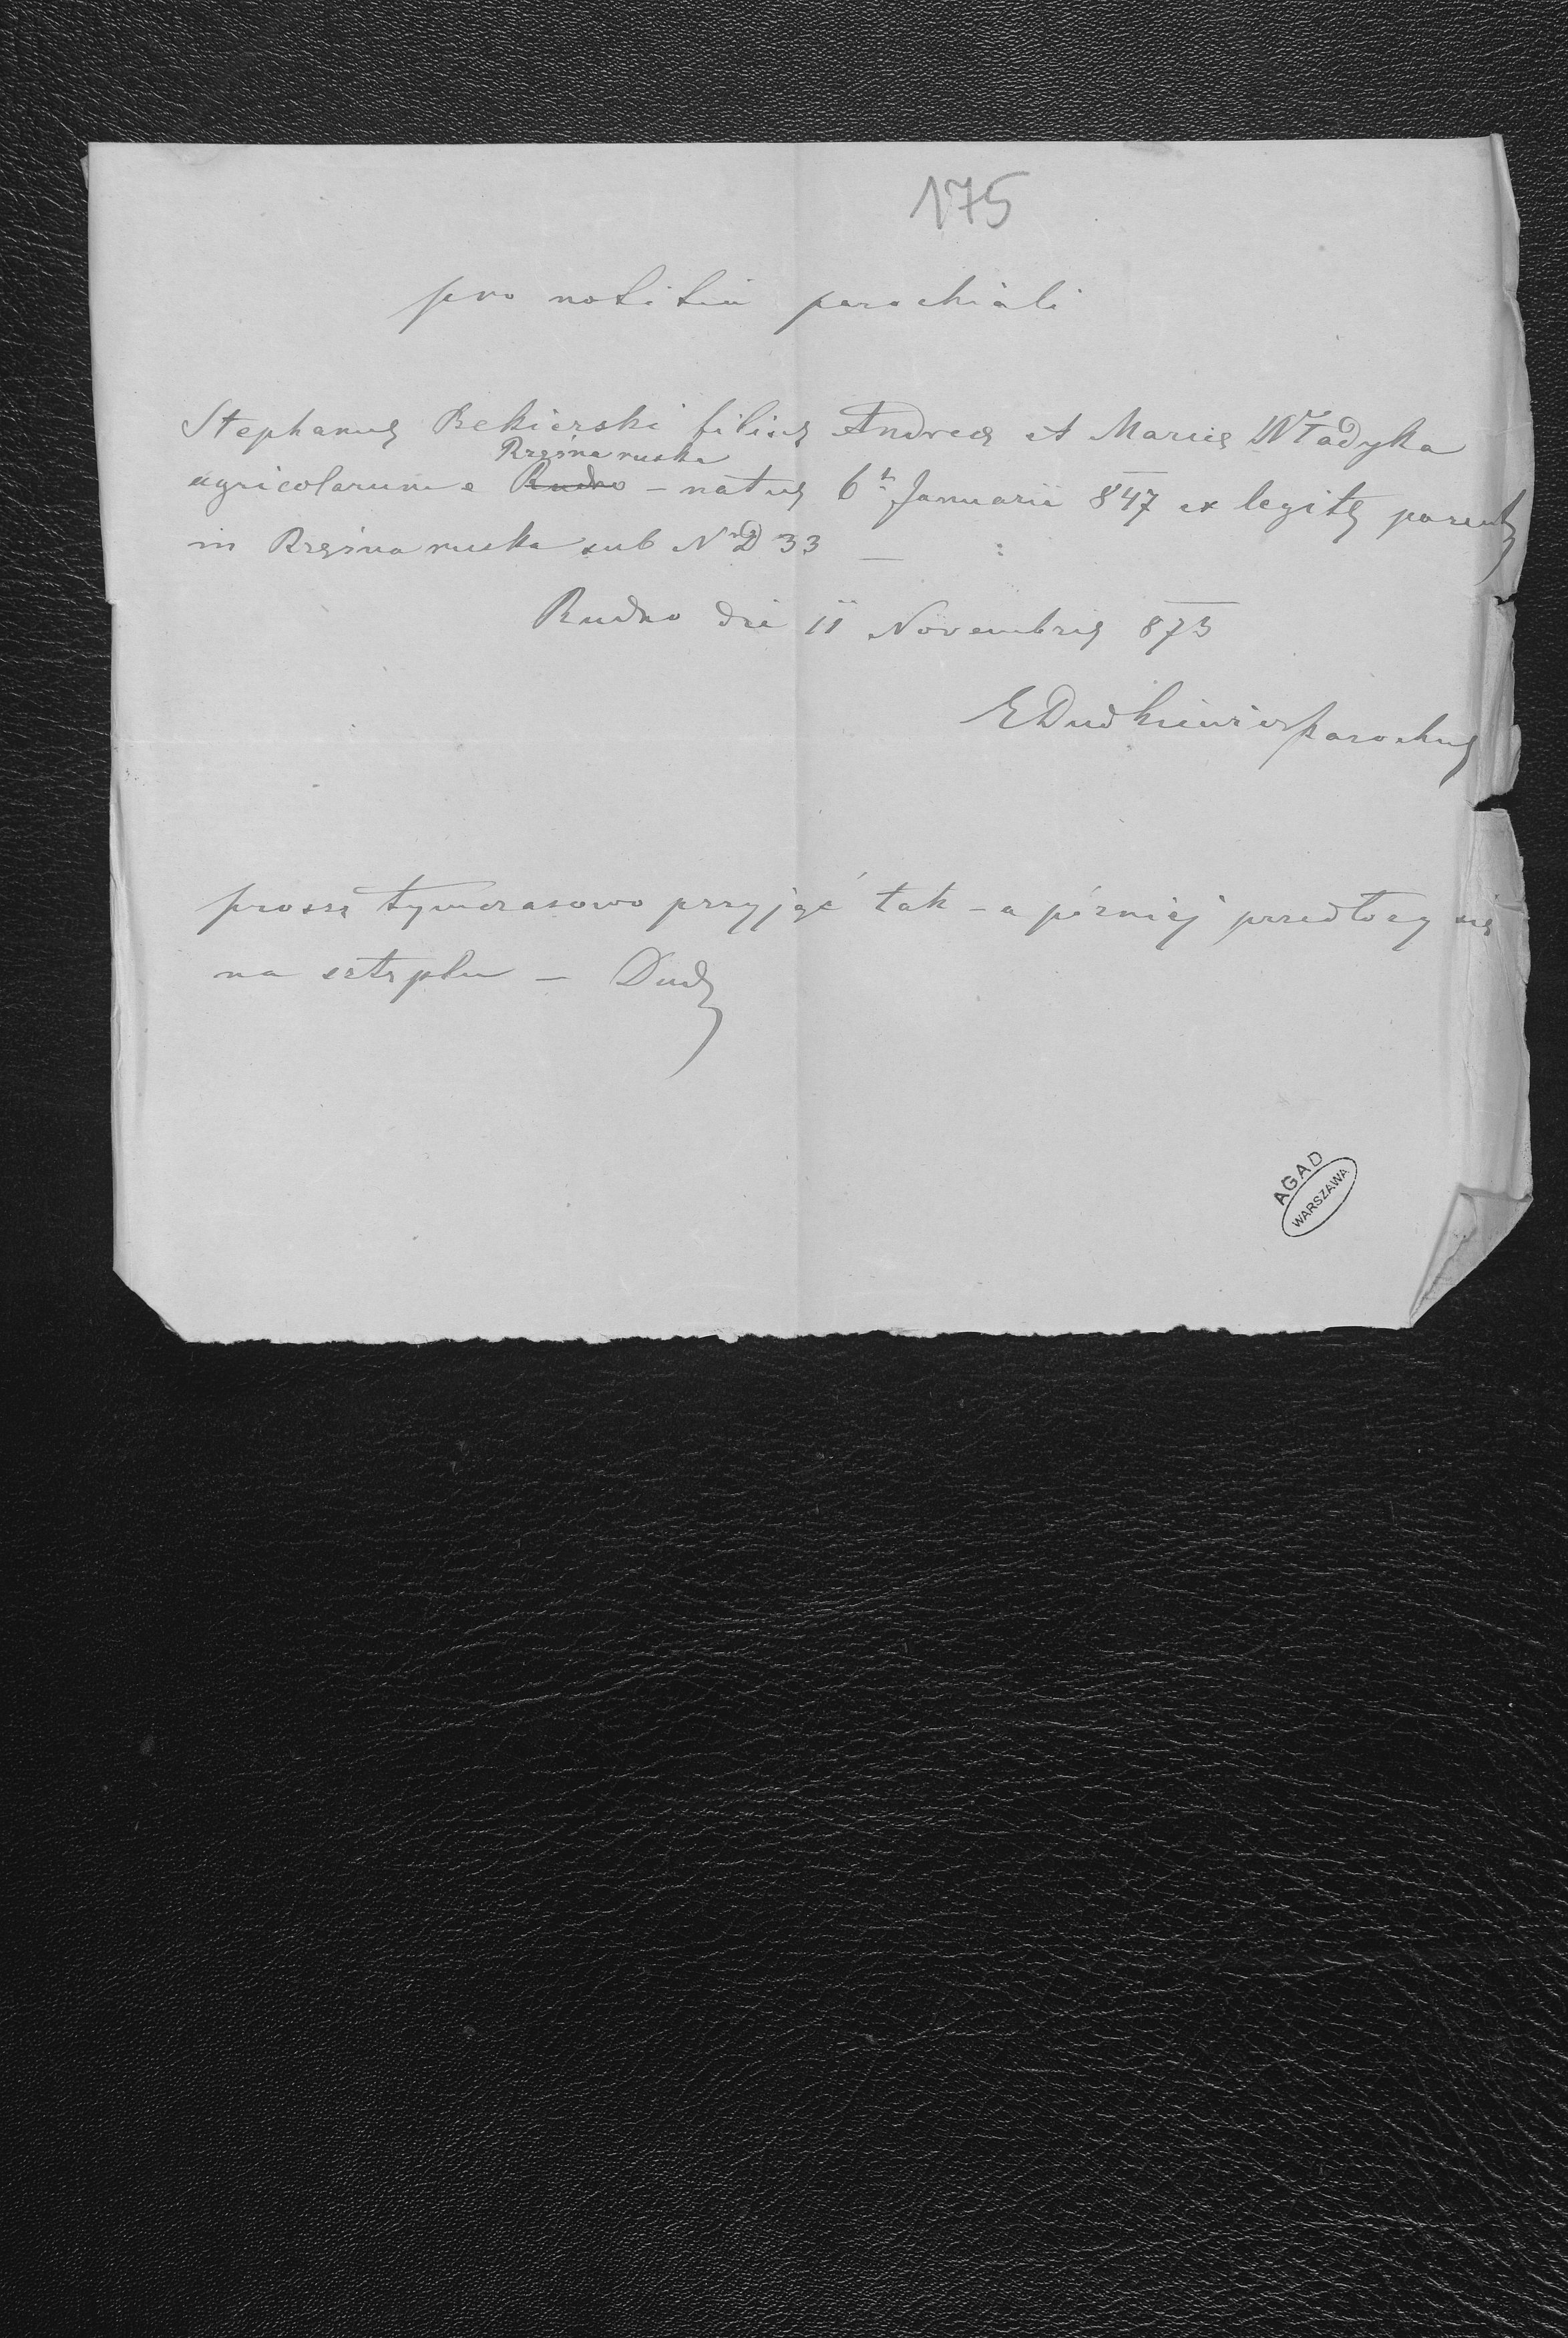 175
pro notitia parochiali
Stephanus Bekierski filius Andreæ et Mariæ Władyka
Rzęsna ruska
agricolarum e Rudno – natus 6ta Januarii 847 ex legits parents
in Rzęsna ruska sub Nr D 33 –
Rudno die 11 Novembris 873
E Dudkiewicz parochus
proszę tymczasowo przyjąć tak – a pózniej przedłoży się
na sztęplu – Dudk
AGAD
WARSZAWA